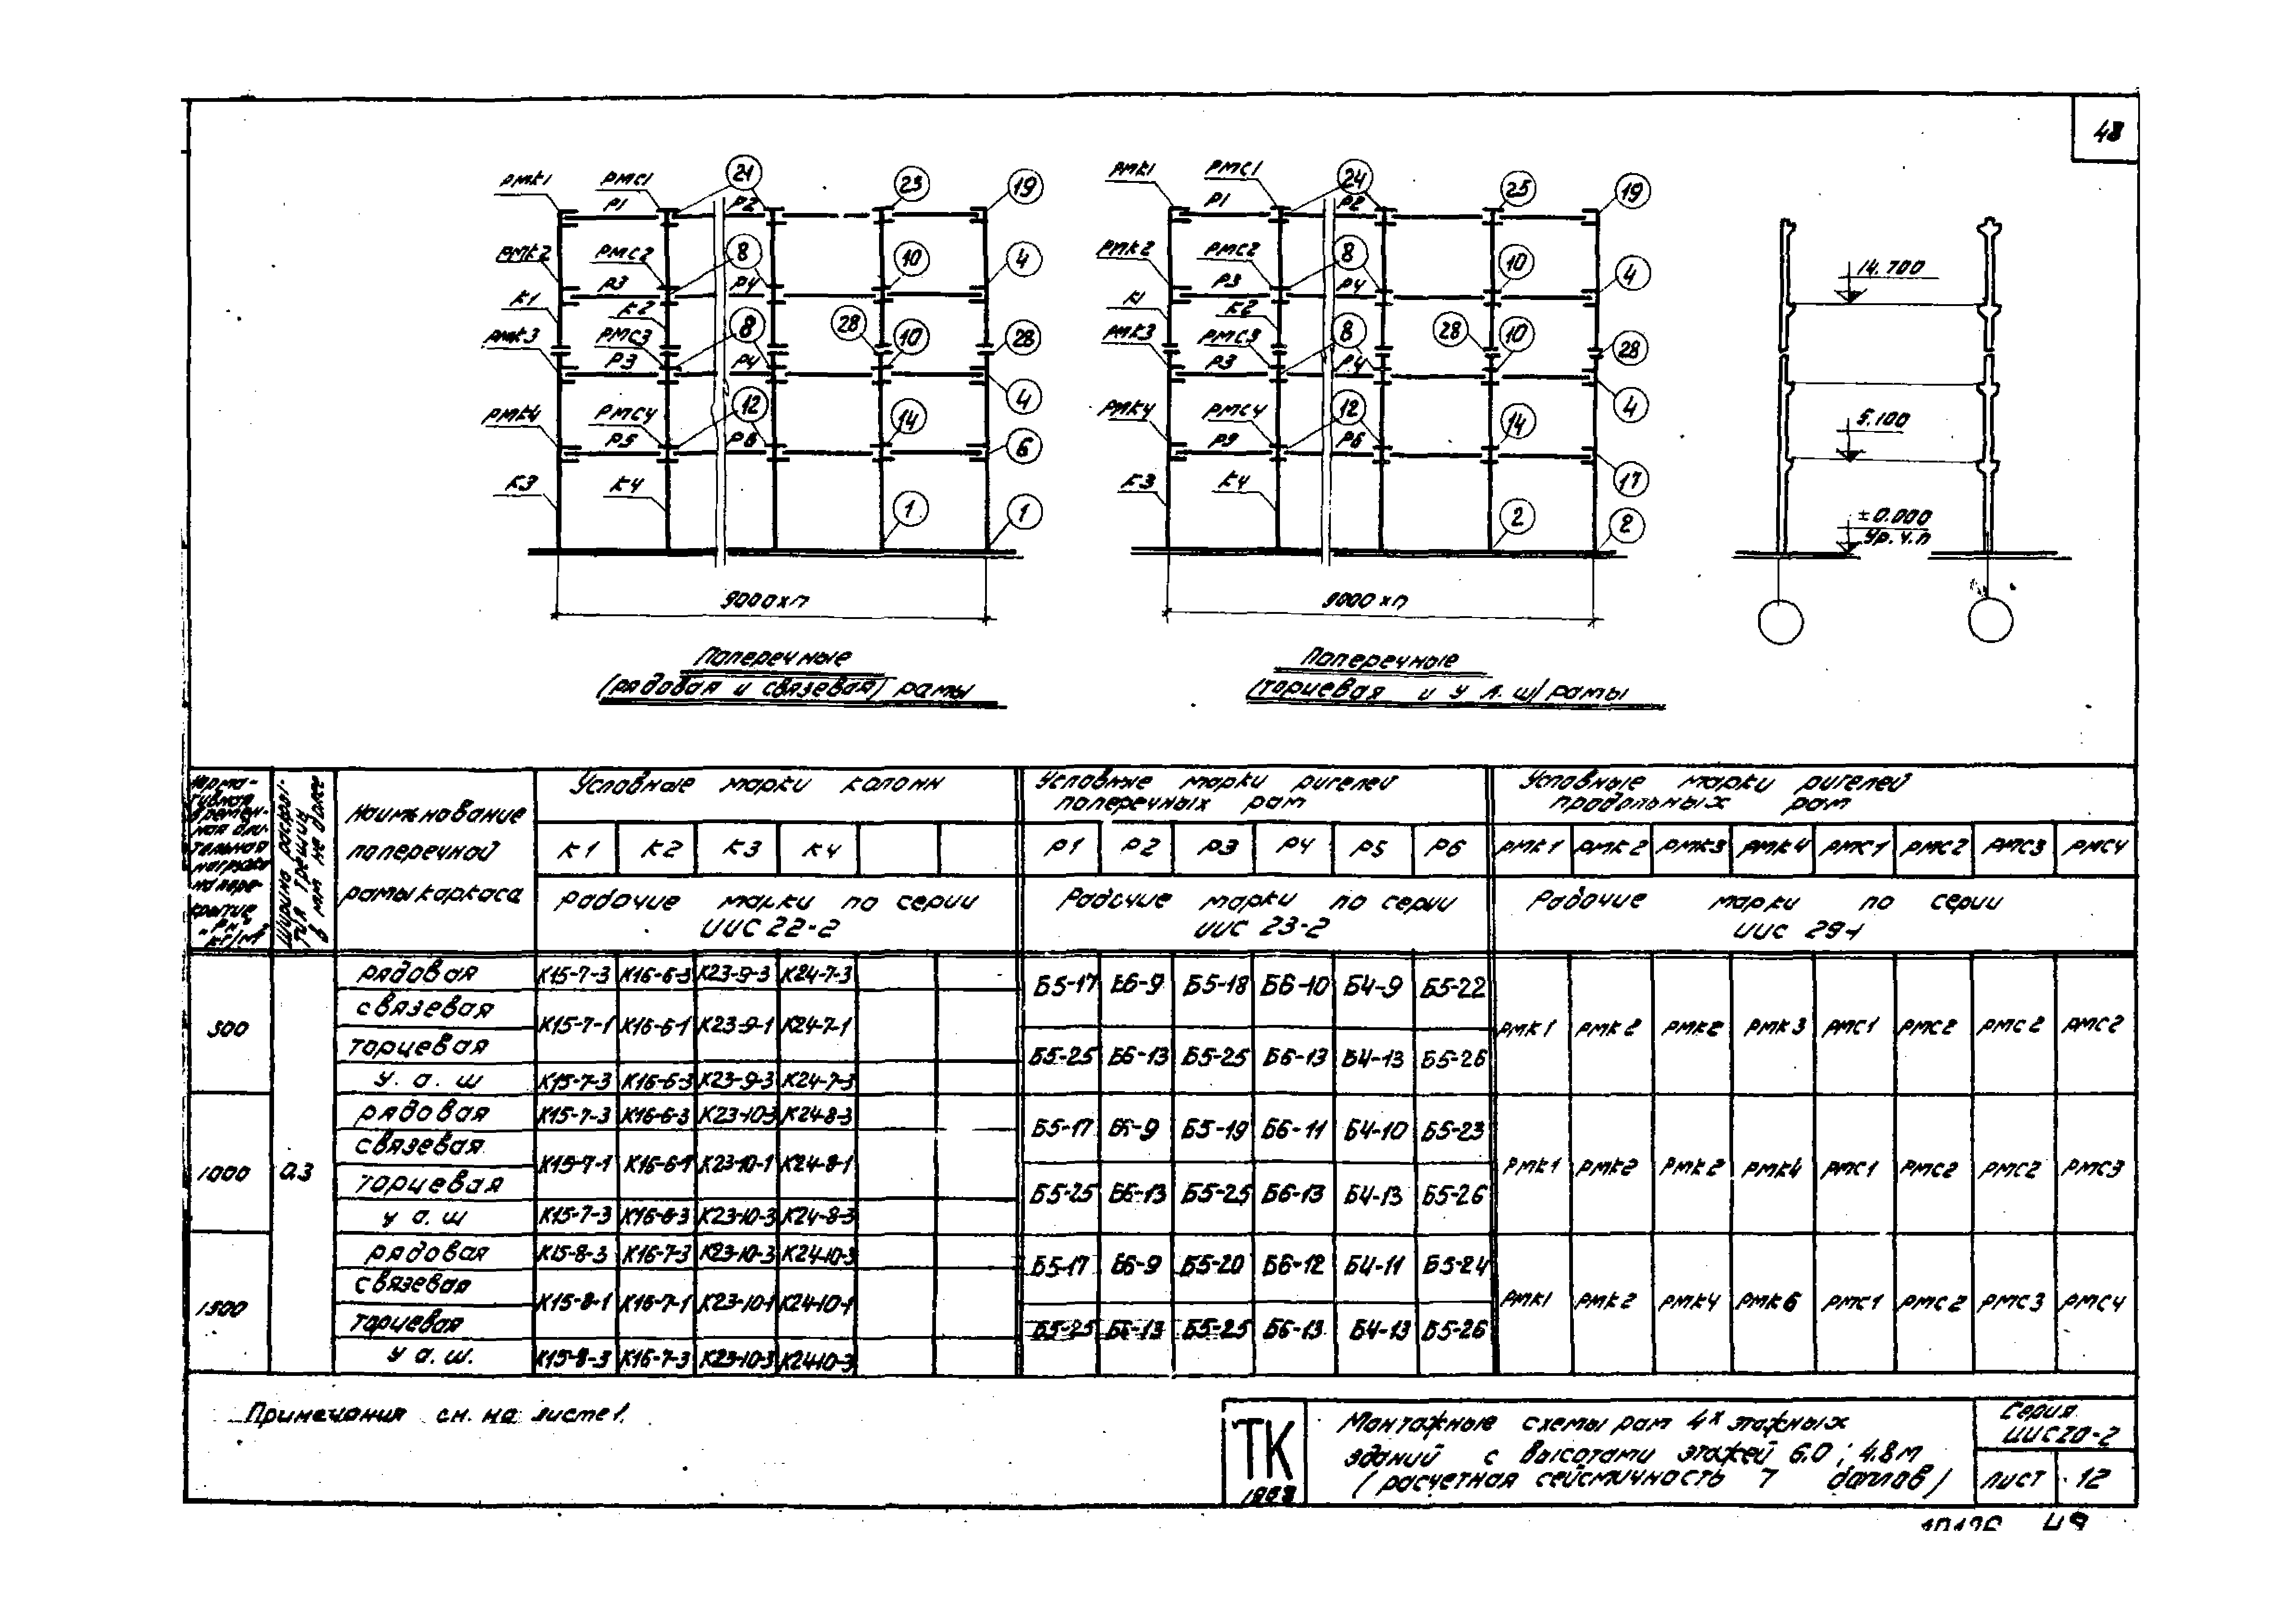 48
РМК1 РМС1 21 23 19
Р1 Р2
РМК2 РМС2 8 10 4
Р3 Р4
К1 К2
РМК3 РМС3 8 28 10 28
Р3 Р4
4
РМК4 РМС4 12 14 6
Р5 Р6
К3 К4
1 1
9000хп
Поперечные
(рядовая и связевая) рамы
РМК1 РМС1 24 25 19
Р1 Р2
РМК2 РМС2 8 10 4
Р3 Р4
К1 К2
РМК3 РМС3 8 28 10 28
Р3 Р4
4
РМК4 РМС4 12 14
Р5 Р6
17
К3 К4
2 2
9000хп
Поперечные
(торцевая и у а.ш) рамы
14.700
5.100
±0.000
Ур.ч.п
Норма-
тивная
времен-
ная дли-
тельная
нагрузка
на пере-
крытие
"Рн"
кг/м²
Ширина раскры-
тия трещин
в мм не более
Наименование
поперечной
рамы каркаса
Условные марки колонн
К1 К2 К3 К4
Рабочие марки по серии
ИИС 22-2
Условные марки ригелей
поперечных рам
Р1 Р2 Р3 Р4 Р5 Р6
Рабочие марки по серии
ИИС 23-2
Условные марки ригелей
продольных рам
РМК1 РМК2 РМК3 РМК4 РМС1 РМС2 РМС3 РМС4
Рабочие марки по серии
ИИС 29-1
500
рядовая К15-7-3 К16-6-3 К23-9-3 К24-7-3
связевая
Б5-17 Б6-9 Б5-18 Б6-10 Б4-9 Б5-22
К15-7-1 К16-6-1 К23-9-1 К24-7-1
РМК1 РМК2 РМК2 РМК3 РМС1 РМС2 РМС2 РМС2
торцевая
Б5-25 Б6-13 Б5-25 Б6-13 Б4-13 Б5-26
у. а. ш К15-7-3 К16-6-3 К23-9-3 К24-7-3
1000 0.3
рядовая К15-7-3 К16-6-3 К23-10-3 К24-8-3
связевая
Б5-17 Б6-9 Б5-19 Б6-11 Б4-10 Б5-23
К15-7-1 К16-6-1 К23-10-1 К24-8-1
РМК1 РМК2 РМК2 РМК4 РМС1 РМС2 РМС2 РМС3
торцевая
Б5-25 Б6-13 Б5-25 Б6-13 Б4-13 Б5-26
у а. ш К15-7-3 К16-6-3 К23-10-3 К24-8-3
1500
рядовая К15-8-3 К16-7-3 К23-10-3 К24-10-3
связевая
Б5-17 Б6-9 Б5-20 Б6-12 Б4-11 Б5-24
К15-8-1 К16-7-1 К23-10-1 К24-10-1
РМК1 РМК2 РМК4 РМК6 РМС1 РМС2 РМС3 РМС4
торцевая
Б5-25 Б6-13 Б5-25 Б6-13 Б4-13 Б5-26
у а. ш. К15-8-3 К16-7-3 К23-10-3 К24-10-3
Примечания см. на листе 1.
ТК
Монтажные схемы рам 4х этажных
зданий с высотами этажей 6.0; 4.8м
(расчетная сейсмичность 7 баллов)
Серия
ИИС20-2
Лист 12
49